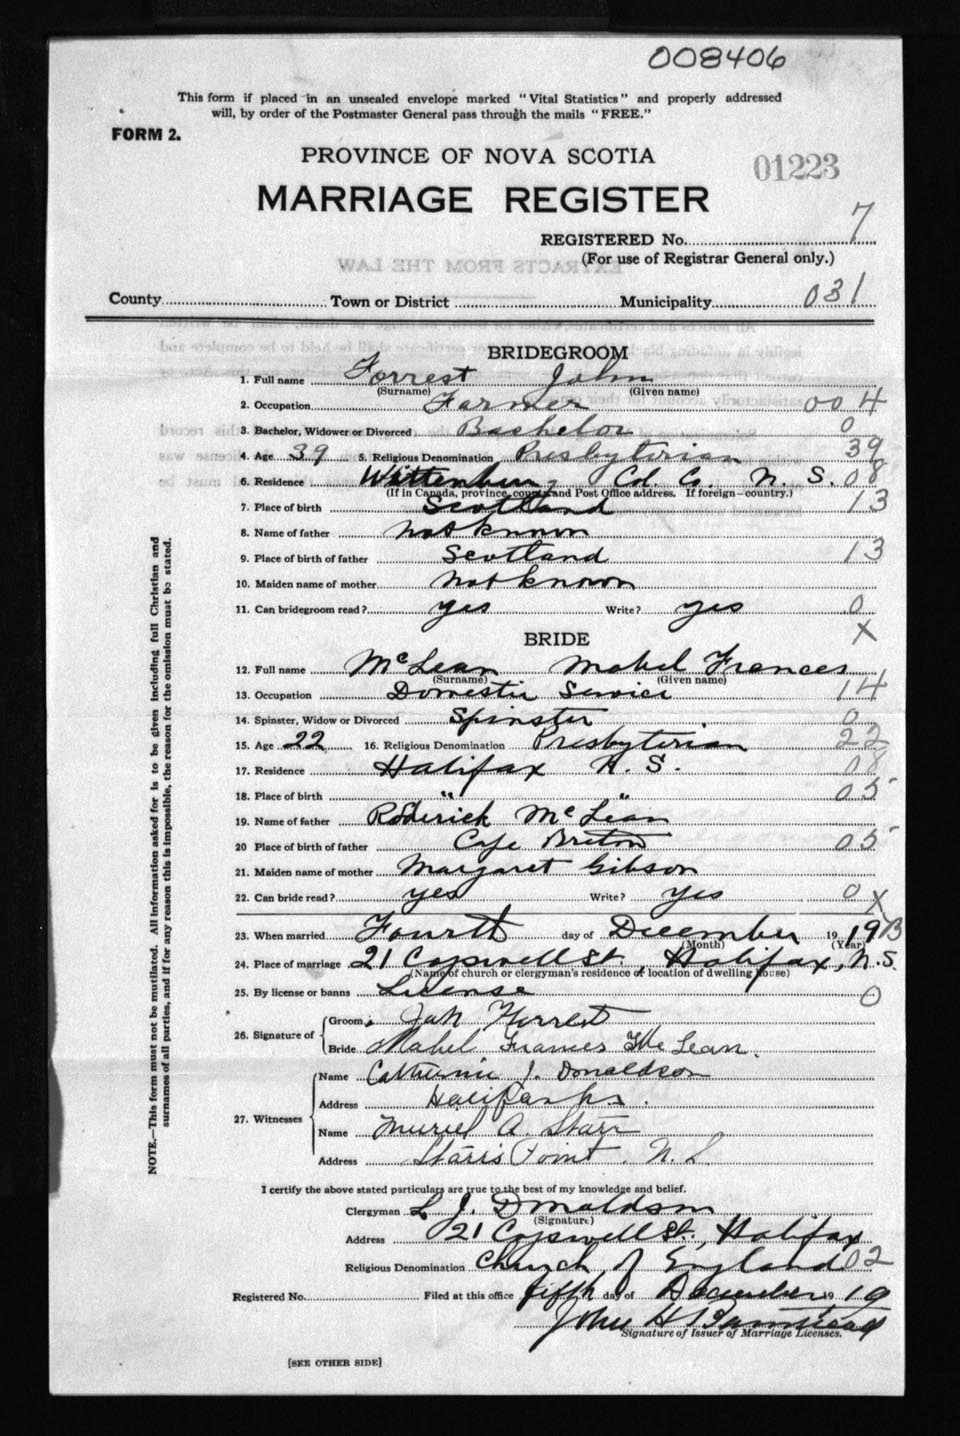 008406
This form if placed in an unsealed envelope marked "Vital Statistics" and properly addressed
will, by order of the Postmaster General pass through the mails "FREE."
FORM 2.
PROVINCE OF NOVA SCOTIA
01223
MARRIAGE REGISTER
REGISTERED No. 7
(For use of Registrar General only.)
EXTRACTS FROM THE LAW
County Town or District Municipality 031
BRIDEGROOM
1. Full name Forrest John
(Surname) (Given name)
2. Occupation Farmer 00 4
3. Bachelor, Widower or Divorced Bachelor 0
4. Age 39 5. Religious Denomination Presbyterian 39
6. Residence Wittenburg Col. Co. N. S. 08
(If in Canada, province, county and Post Office address. If foreign—country.)
7. Place of birth Scotland 13
8. Name of father not known
9. Place of birth of father Scotland 13
10. Maiden name of mother not known
11. Can bridegroom read? yes Write? yes 0
X
BRIDE
12. Full name McLean Mabel Frances
(Surname) (Given name)
13. Occupation Domestic Service 14
14. Spinster, Widow or Divorced Spinster 0
15. Age 22 16. Religious Denomination Presbyterian 22
17. Residence Halifax N. S. 08
18. Place of birth " " 05
19. Name of father Roderick McLean
20 Place of birth of father Cape Breton 05
21. Maiden name of mother Margaret Gibson
22. Can bride read? yes Write? yes 0 X
23. When married Fourth day of December 19 19 B
(Month) (Year)
24. Place of marriage 21 Cogswell St., Halifax, N.S.
(Name of church or clergyman's residence or location of dwelling house)
25. By license or banns License 0
26. Signature of Groom John Forrest
Bride Mabel Frances McLean.
27. Witnesses Name Catherine J. Donaldson
Address Halifax N.S.
Name Muriel A. Starr
Address Starr's Point, N.S.
I certify the above stated particulars are true to the best of my knowledge and belief.
Clergyman L J. Donaldson
(Signature)
Address 21 Cogswell St., Halifax
Religious Denomination Church of England 02
Registered No. Filed at this office fifth day of December 19 19
John H
Signature of Issuer of Marriage Licenses.
[SEE OTHER SIDE]
NOTE.—This form must not be mutilated. All information asked for is to be given including full Christian and
surnames of all parties, and if for any reason this is impossible, the reason for the omission must be stated.